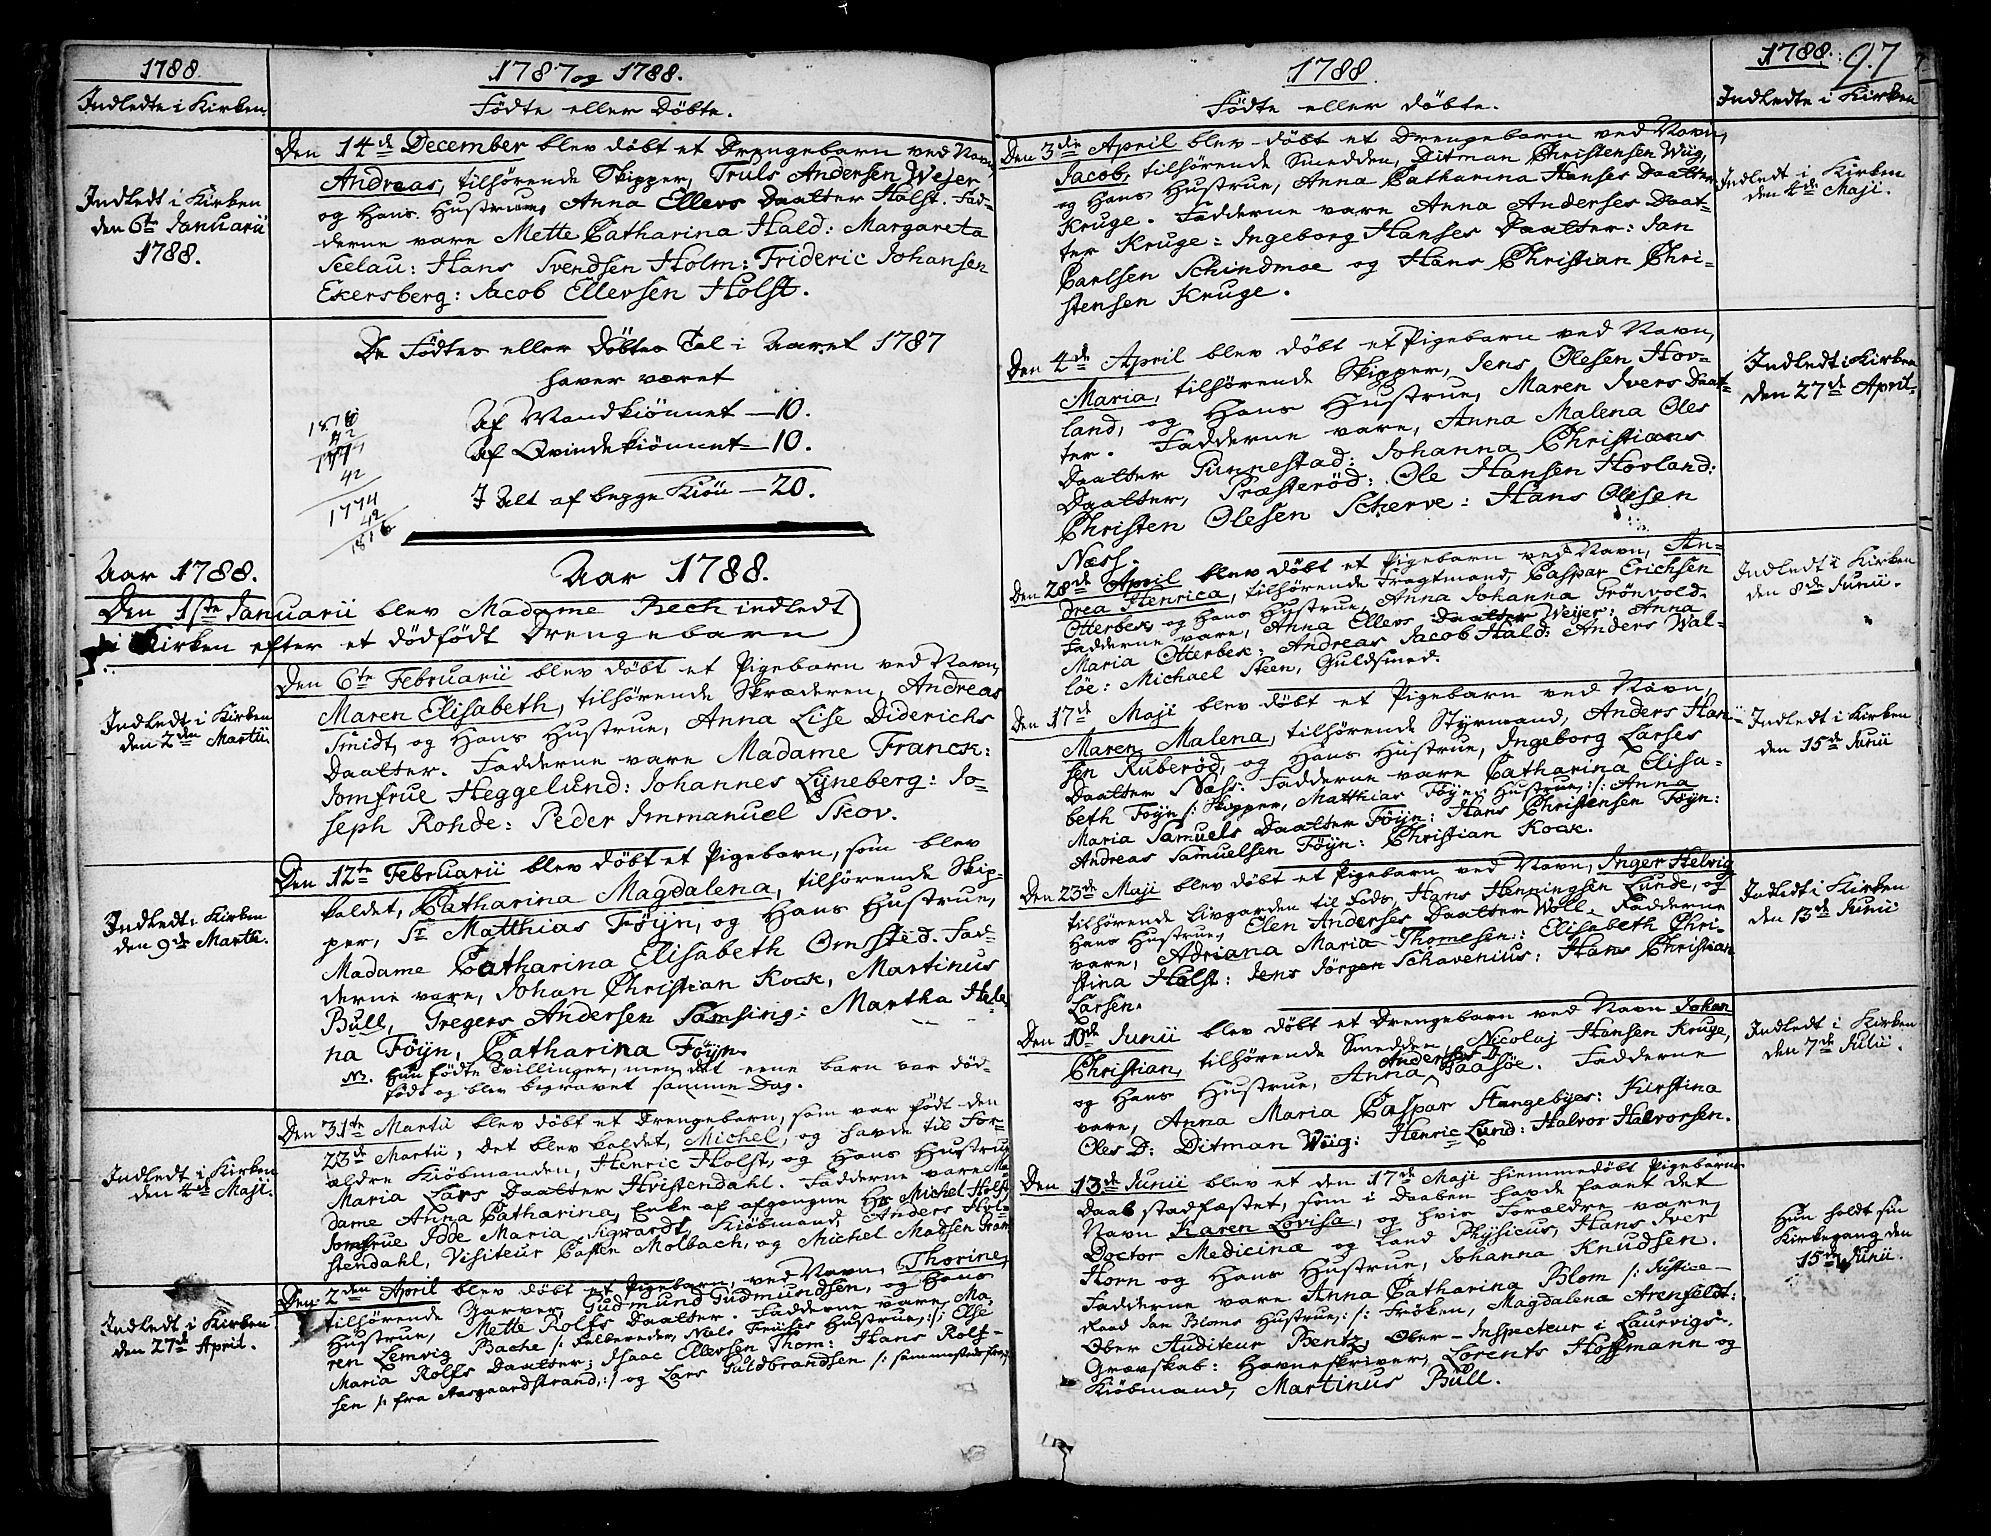 1788.
Indledte i Kirken.
1787 og 1788.
Fødte eller Døbte.
Indledt i Kirken
den 6te Januarii
1788.
Den 14de December blev døbt et Drengebarn ved Navn,
Andreas, tilhørende Skipper, Truls Andersen Wejer
og Hans Hustrue, Anna Ellers Daatter Holst. Fad-
derne vare Mette Catharina Hald: Margareta
Seelau: Hans Svendsen Holm: Frideric Johansen
Ekersberg: Jacob Ellevsen Holst.
De Fødtes eller Døbtes Tal i Aaret 1787
haver været
Af Mandkiønnet — 10.
Af Qvindekiønnet — 10.
I Alt af begge Kiøn — 20.
42
42
1774
42
1816
Aar 1788.
Aar 1788.
Den 1ste Januarii blev Madame Bech indledt
i Kirken efter et dødfødt Drengebarn
Indledt i Kirken
den 2den Martii
Den 6te Februarii blev døbt et Pigebarn ved Navn,
Maren Elisabeth, tilhørende Skræderen, Andreas
Smidt, og Hans Hustrue, Anna Lise Diderichs
Daatter. Fadderne vare Madame Franck:
Jomfrue Heggelund: Johannes Lyneberg: Jo-
seph Rohde: Peder Immanuel Skov.
Indledt i Kirken
den 9de Martii.
Den 12te Februarii blev døbt et Pigebarn, som blev
kaldet, Catharina Magdalena, tilhørende Skip-
per, Sr Matthias Føyn, og Hans Hustrue,
Madame Catharina Elisabeth Omsted. Fad-
derne vare, Johan Christian Kock, Martinus
Bull, Gregers Andersen Samsing: Martha Hele-
na Føyn, Catharina Føyn.
NB. Hun fødte Tvillinger, men det eene barn var død-
født og blev begravet samme Dag.
Indledt i Kirken
den 4de Maji.
Den 31te Martii blev døbt et Drengebarn, som var født den
23de Martii, det blev kaldet, Michel, og havde til For-
ældre Kiøbmanden, Henric Holst, og Hans Hustrue
Maria Lars Daatter Hvistendahl. Fadderne vare Ma-
dame Anna Catharina, Enke af afgangne Hr Michel Holst,
Jomfrue Idde Maria Sigvardt, Kiøbmand, Anders Hvi-
stendahl, Visiteur Casten Molbach, og Michel Madsen Gram
Indledt i Kirken
den 27de April.
Den 2den April blev døbt et Pigebarn, ved Navn, Thorine,
tilhørende Garver, Gudmund Gudmundsen, og Hans
Hustrue, Mette Rolfs Daatter. Fadderne vare Ma-
ren Lemvig Bache /: Feldbereder, Niels Friises Hustrue, :/: Else
Maria Rolfs Daatter; Isaac Ellevsen Thom: Hans Rolf-
sen /: fra Aasgaardstrand, :/ og Lars Guldbrandsen /: sammesteds fra :/
1788.
Fødte eller døbte.
1788. 97
Indledte i Kirken
Den 3die April blev døbt et Drengebarn ved Navn,
Jacob, tilhørende Smedden, Ditman Christensen Wiig,
og Hans Hustrue, Anna Catharina Hanses Daatter
Kruge. Fadderne vare Anna Anderses Daat-
ter Kruge: Ingeborg Hanses Daatter: Jan
Carlsen Schindmoe og Hans Christian Chri-
stensen Kruge.
Indledt i Kirken
den 4de Maji.
Den 4de April blev døbt et Pigebarn ved Navn,
Maria, tilhørende Skipper, Jens Olesen Hov-
land, og Hans Hustrue, Maren Ivers Daat-
ter. Fadderne vare, Anna Malena Oles
Daatter Gunnestad: Johanna Christians
Daatter, Præsterød: Ole Hansen Hovland:
Christen Olesen Scherve: Hans Olesen
Næss.
Indledt i Kirken
den 27de April.
Den 28de April blev døbt et Pigebarn ved Navn, An-
drea Henrica, tilhørende Fragtmand, Caspar Erichsen
Otterbek, og Hans Hustrue, Anna Johanna Grønvold-
Fadderne vare, Anna Ellers Daatter Weyer: Anna
Maria Otterbek: Andreas Jacob Hald: Anders Wal-
løe: Michael Steen, Guldsmed.
Indledt i Kirken
den 8de Junii.
Den 17de Maji blev døbt et Pigebarn ved Navn,
Maren Malena, tilhørende Styrmand, Anders Han-
sen Ruberød, og Hans Hustrue, Ingeborg Larses
Daatter Næss: Fadderne vare Catharina Elisa-
beth Føyn /: Skipper, Matthias Føyns Hustrue, :/: Anna
Maria Samuels Daatter Føyn: Hans Christensen Føyn:
Andreas Samuelsen Føyn: Christian Kock.
Indledt i Kirken
den 15de Junii
Den 23de Maji blev døbt et Pigebarn ved Navn, Inger Helvig
tilhørende Livgarden til Fods, Hans Henningsen Lunde, og
Hans Hustrue, Elen Anderses Daatter Woll. Fadderne
vare, Adriana Maria Thomesen: Elisabeth Chri-
stina Holst: Jens Jörgen Schavenius: Hans Christian
Larsen.
Indledt i Kirken
den 13de Junii
Den 10de Junii blev døbt et Drengebarn ved Navn Johan
Christian, tilhørende Smedden, Nicolaj Hansen Kruge,
og Hans Hustrue, Anna Anderses D. Faasøe. Fadderne
vare, Anna Maria Caspar Stangebyes: Kirstina
Oles D: Ditman Wiig: Henric Lund: Halvor Halvorsen.
Indledt i Kirken
den 7de Julii.
Den 13de Junii blev et den 17de Maji hiemmedøbt Pigebarns
Daab stadfæstet, som i Daaben havde faaet det
Navn Karen Lovisa, og hvis Forældre vare,
Doctor Medicinæ og Land Physicus, Hans Iver
Horn og Hans Hustrue, Johanna Knudsen.
Fadderne vare Anna Catharina Blom /: Justice-
Raad Jan Bloms Hustrue, :/: Frøken, Magdalena Arenfeldt:
Ober Auditeur Bentz, Ober-Inspecteur i Laurvigs-
Grævskab: Havneskriver, Lorents Hoffmann og
Kiøbmand, Martinus Bull.
Hun holdt sin
Kirkegang den
15de Junii.